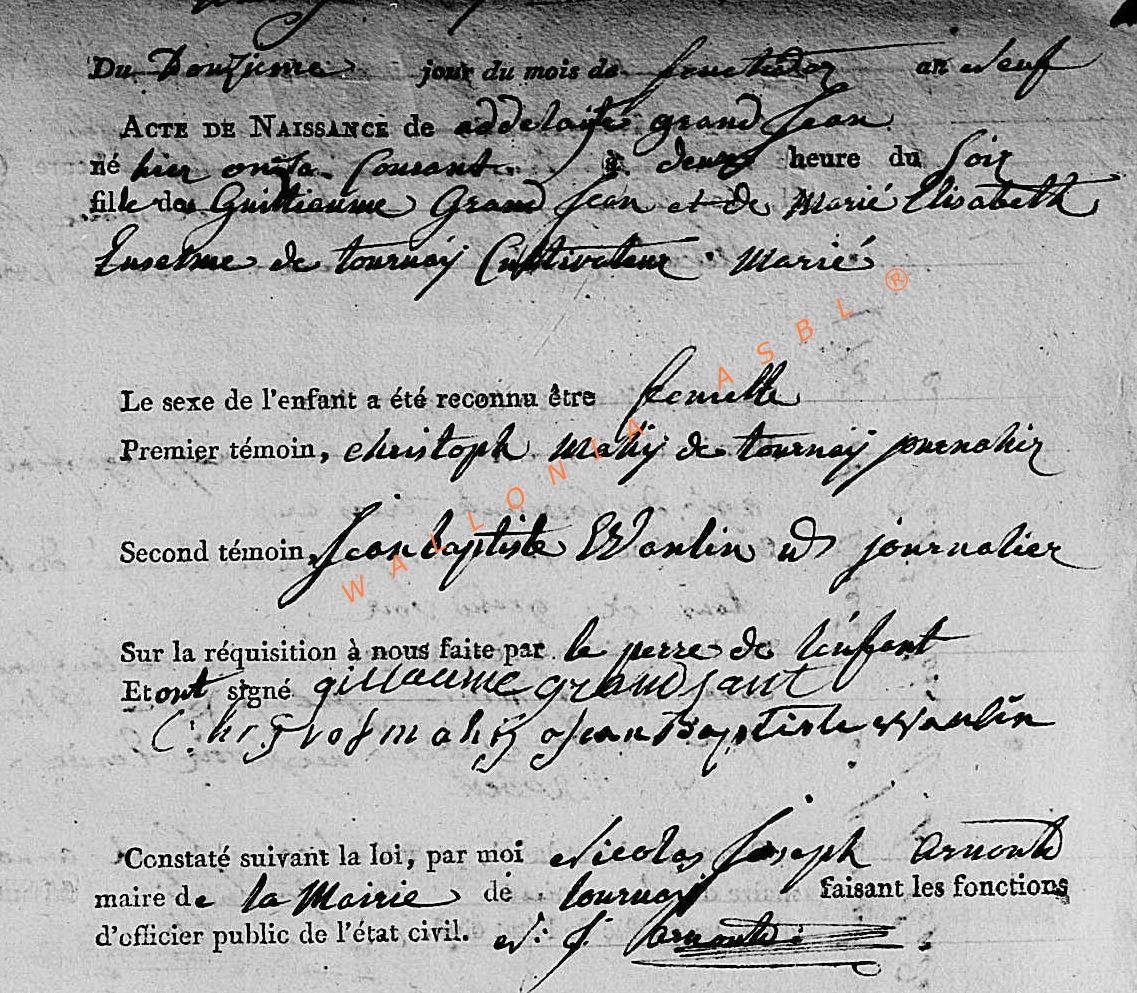 Du Douzieme jour du mois de fructidor an neuf
ACTE DE NAISSANCE de addelaïté grand Jean
né hier onse Courant à deux heure du Soir
fille de Guilliaume Grand Jean et de Marié Elisabeth
Enselme de tournaÿ Cultivateur Marié
Le sexe de l'enfant a été reconnu être femelle
Premier témoin, christoph Mahÿ de tournaÿ journalier
Second témoin, Jean baptiste Wanlin id journalier
Sur la réquisition à nous faite par le perre de l'enfant
Et ont signé gillaume grandjant
Jean Baptiste Wanlin
Constaté suivant la loi, par moi Nicolas Joseph Arnould
maire de la Mairie de tournaÿ faisant les fonctions
d'officier public de l'état civil. N: J. Arnould
WALLONIA ASBL ®